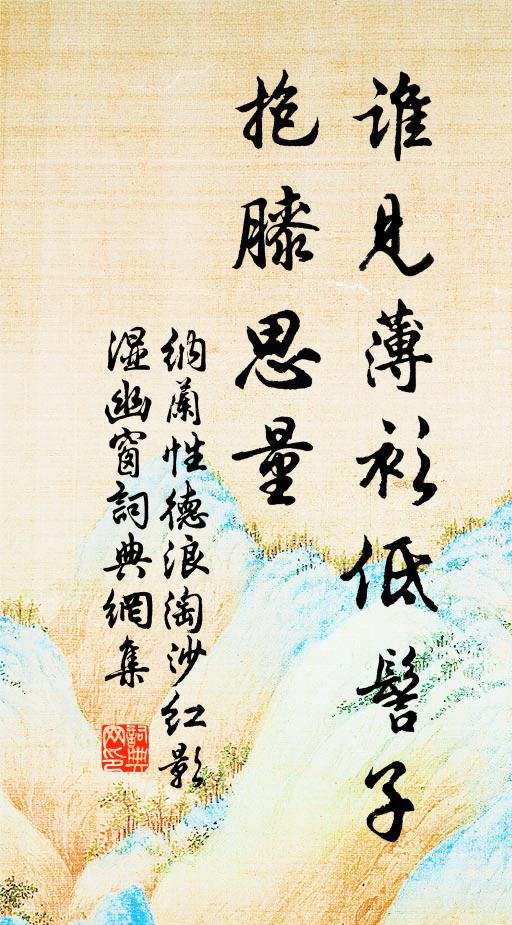 誰见薄衫低髻子
抱膝思量
纳蘭性德浪淘沙红影
湿幽窗詞典網集
詞典
网印